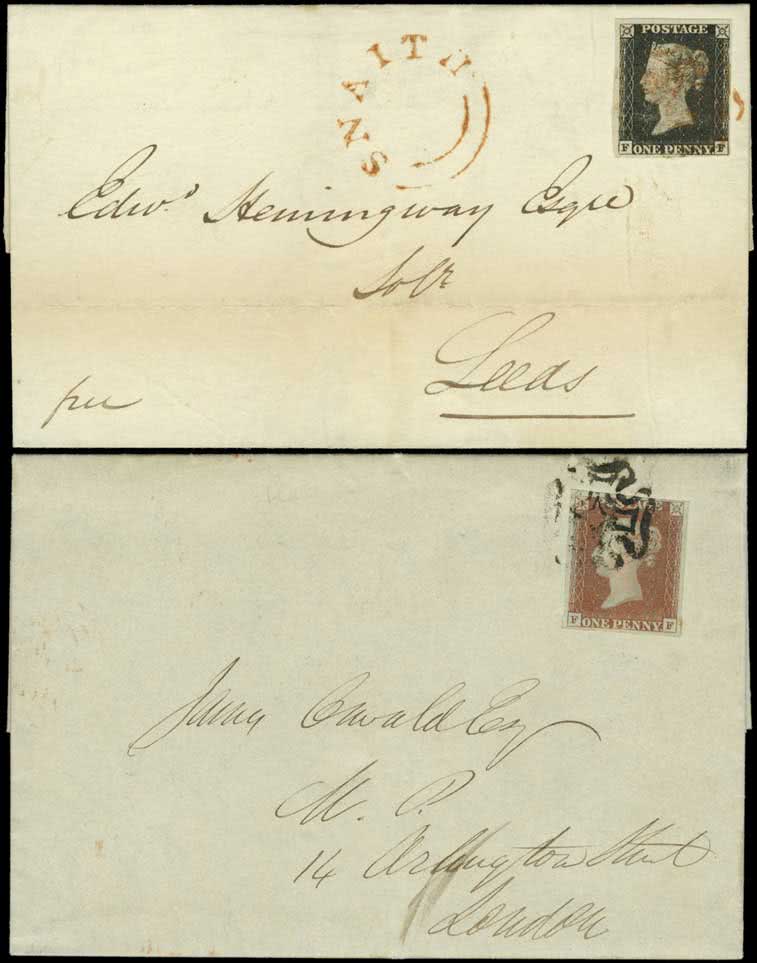 SNAITH
POSTAGE
F ONE PENNY F
Edwd. Hemingway Esqre
Solr
Leeds
free
F ONE PENNY F
James Oswald Esq
M. P.
14 Arlington Street
London